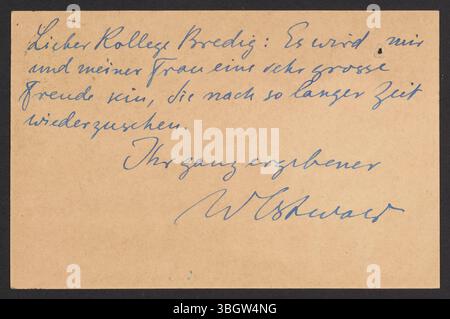 Lieber Kollege Bredig: Es wird mir
und meiner Frau eine sehr grosse
Freude sein, Sie nach so langer Zeit
wiederzusehen.
Ihr ganz ergebener
W Ostwald
alamy
Image ID: 3BGW4NG
www.alamy.com